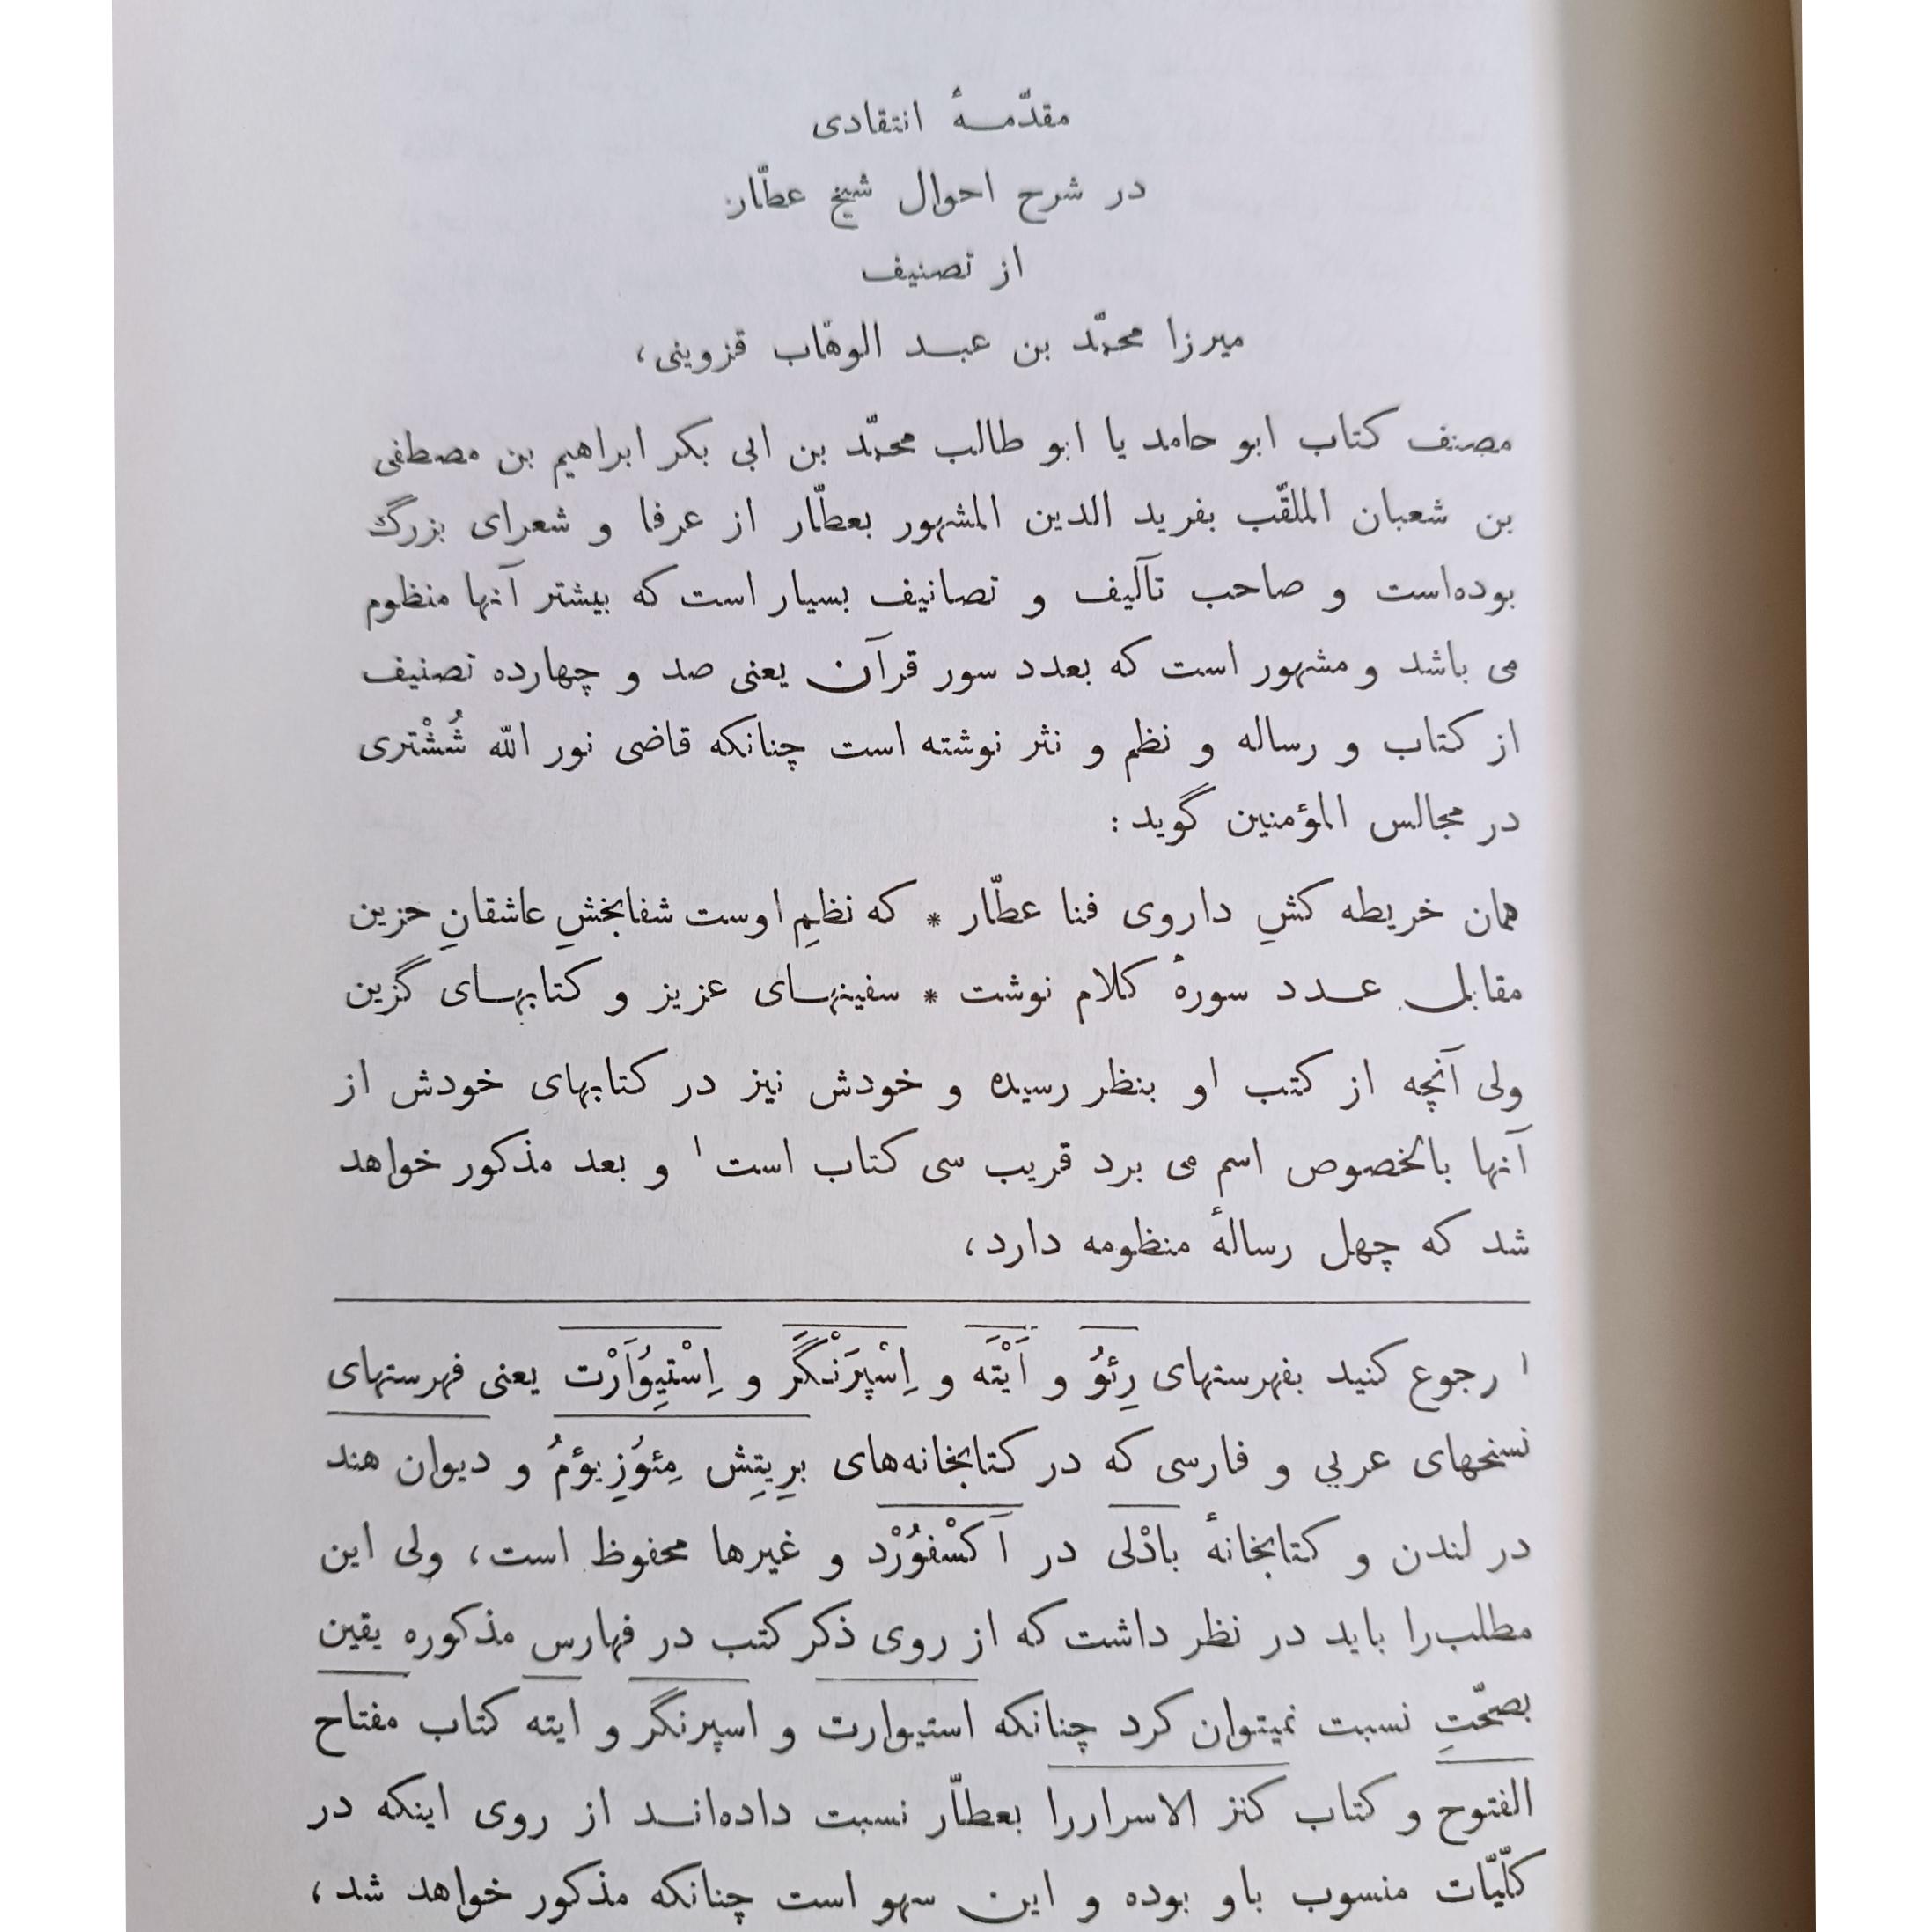 مقدّمهٔ انتقادی
در شرح احوال شیخ عطّار
از تصنیف
میرزا محمّد بن عبد الوهّاب قزوینی،
مصنف کتاب ابو حامد یا ابو طالب محمّد بن ابی بکر ابراهیم بن مصطفی
بن شعبان الملقّب بفرید الدین المشهور بعطّار از عرفا و شعرای بزرگ
بوده‌است و صاحب تآلیف و تصانیف بسیار است که بیشتر آنها منظوم
می باشد و مشهور است که بعدد سور قرآن یعنی صد و چهارده تصنیف
از کتاب و رساله و نظم و نثر نوشته است چنانکه قاضی نور الله شُشْتری
در مجالس المؤمنین گوید:
همان خریطه کشِ داروی فنا عطّار * که نظمِ اوست شفابخشِ عاشقانِ حزین
مقابل عدد سورهٔ کلام نوشت * سفینهای عزیز و کتابهای گزین
ولی آنچه از کتب او بنظر رسیده و خودش نیز در کتابهای خودش از
آنها بالخصوص اسم می برد قریب سی کتاب است ۱ و بعد مذکور خواهد
شد که چهل رسالهٔ منظومه دارد،
۱ رجوع کنید بفهرستهای رِئوُ و اَیْتَه و اِسْپِرَنْگَر و اِسْتیِوُاَرْت یعنی فهرستهای
نسخهای عربی و فارسی که در کتابخانه‌های برِیتِش مِئوُزِیوُمْ و دیوان هند
در لندن و کتابخانهٔ بادْلی در آکسْفوُرْد و غیرها محفوظ است، ولی این
مطلب‌را باید در نظر داشت که از روی ذکر کتب در فهارس مذکوره یقین
بصحّتِ نسبت نمیتوان کرد چنانکه استیوارت و اسپرنگر و ایته کتاب مفتاح
الفتوح و کتاب کنز الاسراررا بعطّار نسبت داده‌اند از روی اینکه در
کلّیّات منسوب باو بوده و این سهو است چنانکه مذکور خواهد شد،